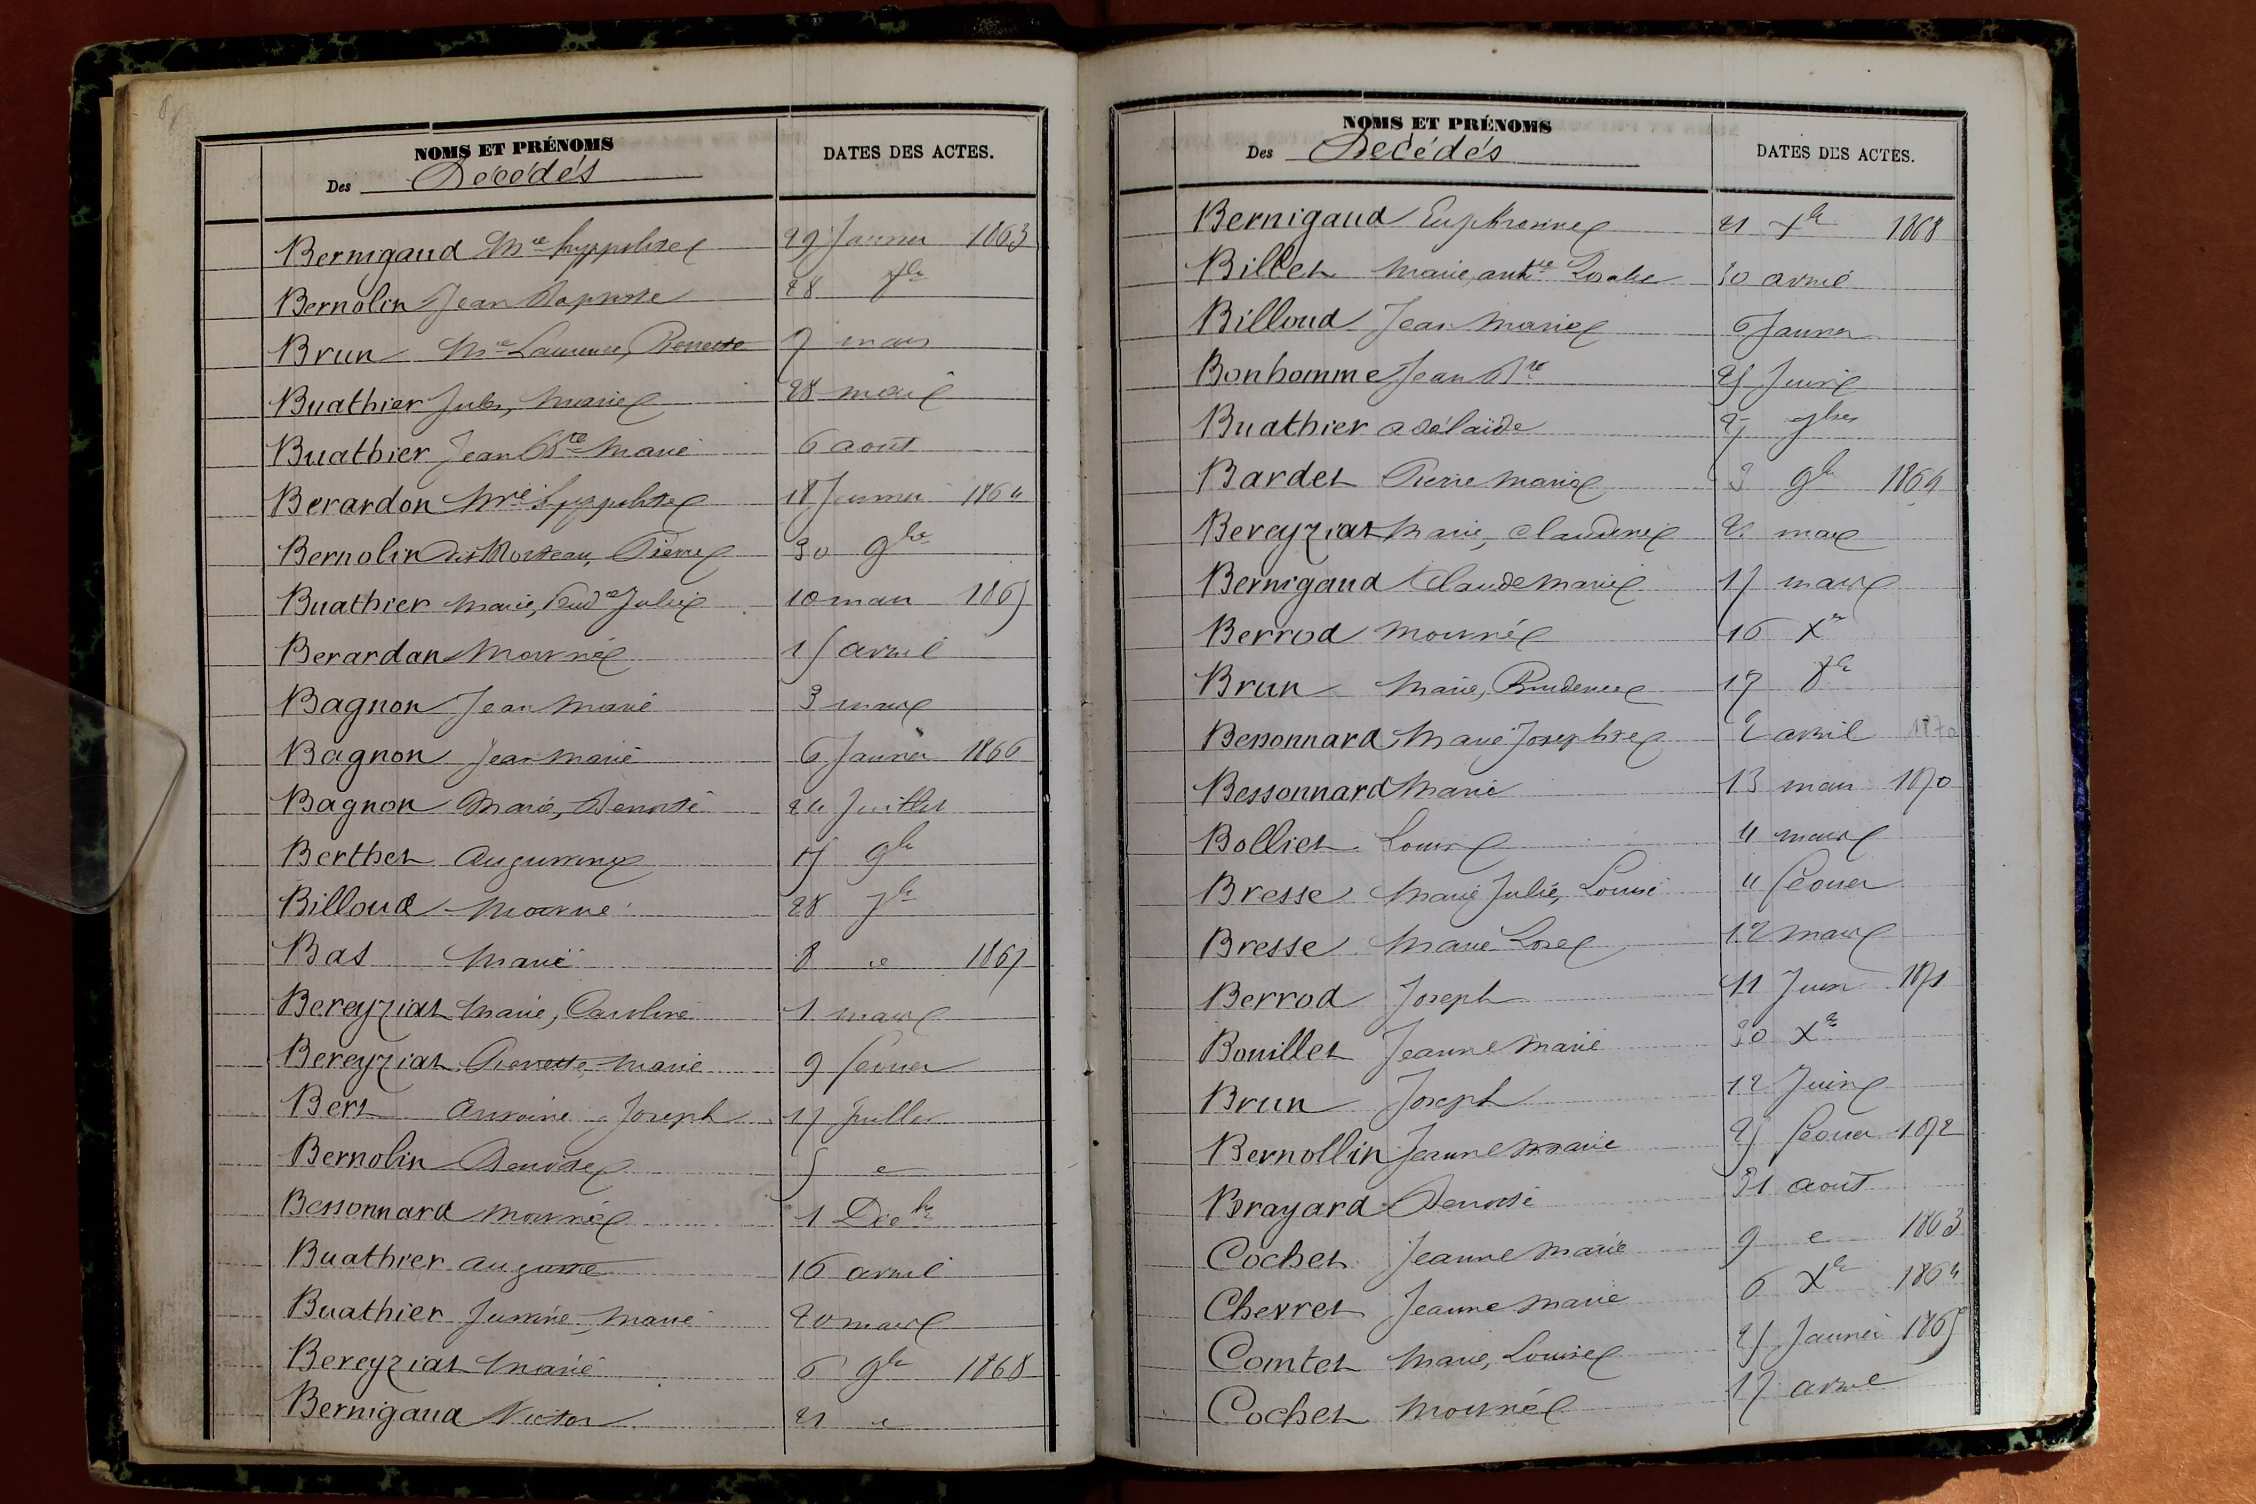 NOMS ET PRÉNOMS
Des Décédés
DATES DES ACTES.
Bernigaud Mie hyppolite 29 Janvier 1863
Bernolin Jean Baptiste 28 Xbre
Brun Mie Laurence, Pierrette 7 mars
Buathier Jules, Marie 28 mai
Buathier Jean Bte Marie 6 août
Berardon Mie hyppolite 18 Janvier 1864
Bernolin dit Morteau, Pierre 30 9bre
Buathier Marie, Julie 10 mars 1865
Berardan Mort né 15 avril
Bagnon Jean Marie 3 mars
Bagnon Jean Marie 6 Janvier 1866
Bagnon Marie, Benoite 24 Juillet
Berthet Augustine 15 9bre
Billoud Mort né 28 7bre
Bas Marie 8 e 1867
Bereyziat Marie, Caroline 1 mars
Bereyziat Pierrette, Marie 9 février
Bert Antoine, Joseph 15 Juillet
Bernolin Benoite 5 e
Bessonnard Mort né 1 Dbre
Buathier Auguste 16 avril
Buathier Justine, Marie 20 mars
Bereyziat Marie 6 9bre 1868
Bernigaud Victor 21 e
NOMS ET PRÉNOMS
Des Décédés
DATES DES ACTES.
Bernigaud Euphrosine 21 Xbre 1868
Billet Marie, antte Rosalie 30 avril
Billoud Jean Marie 6 Janvier
Bonhomme Jean Bte 25 Juin
Buathier adélaïde 27 7bre
Bardet Pierre Marie 3 9bre 1869
Bereyziat Marie, Claudine mai
Bernigaud Claude Marie 15 mars
Berrod Mort né 16 Xbre
Brun Marie, Prudence 17 Xbre
Bessonnard Marie Josephte 2 avril 1870
Bessonnard Marie 13 mars 1870
Bolliet Louis 4 mars
Bresse Marie Julie, Louise 4 février
Bresse Marie Rose 12 mars
Berrod Joseph 11 Juin 1871
Bouillet Jeanne Marie 30 Xbre
Brun Joseph 12 Juin
Bernollin Jeanne Marie 25 février 1872
Brayard Benoite 31 août
Cochet Jeanne Marie 9 e 1863
Chevret Jeanne Marie 6 Xbre 1864
Comtet Marie, Louise 25 Janvier 1865
Cochet Mort né 15 avril